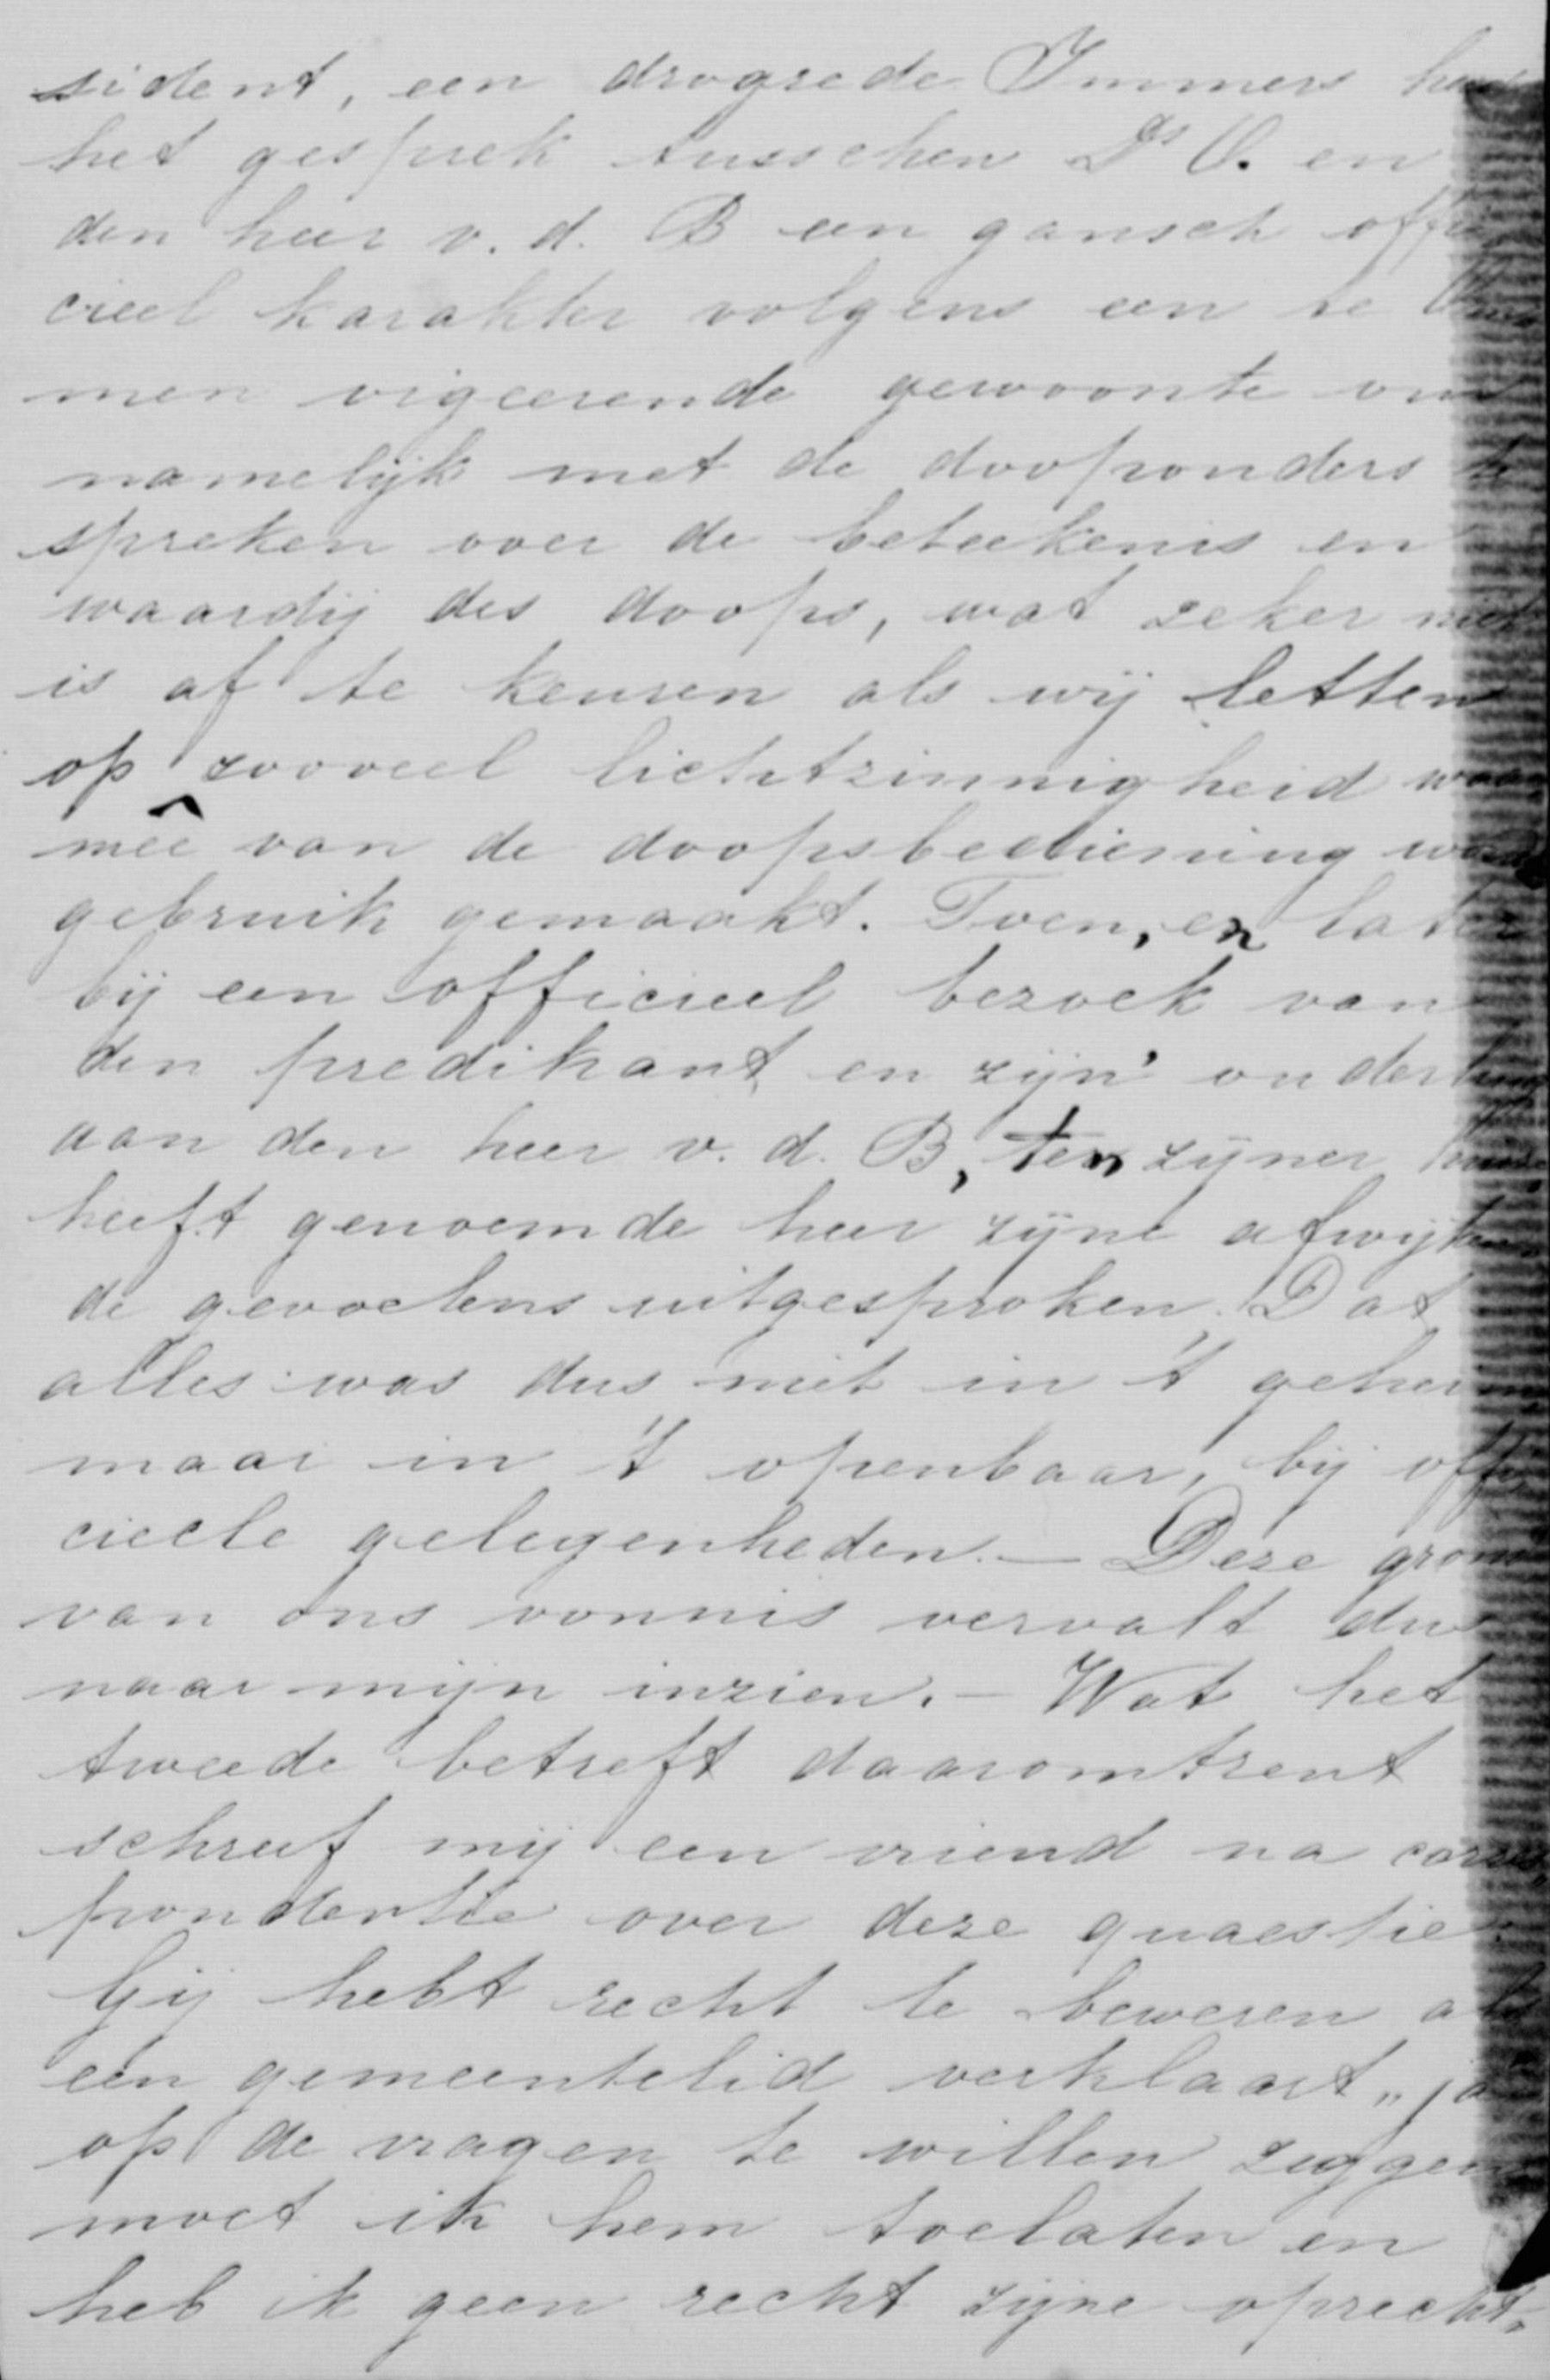 sident, een drogrede. Immers had
het gesprek tusschen Ds V. en
den heer v. d. B een gansch offi
cieel karakter volgens een te
men vigeerende gewoonte om
namelijk met de doopouders te
spreken over de beteekenis en
waardij des doops, wat zeker niet
is af te keuren als wij letten
op zooveel lichtzinnigheid waar
meê van de doopsbediening word
gebruik gemaakt. Toen, en later
bij een officieel bezoek van
den predikant en zijn' ouderling
aan den heer v. d. B, ten zijner
heeft genoemde heer zijne afwijken
de gevoelens uitgesproken. Dat
alles was dus niet in 't geheim
maar in 't openbaar, bij offi
cieele gelegenheden. — Deze grond
van ons vonnis vervalt dus
naar mijn inzien. — Wat het
tweede betreft daaromtrent
schreef mij een vriend na corres
pondentie over deze quaestie
Gij hebt recht te beweren als
een gemeentelid verklaart „ja
op de vragen te willen zeggen
moet ik hem toelaten en
heb ik geen recht zijne oprecht-